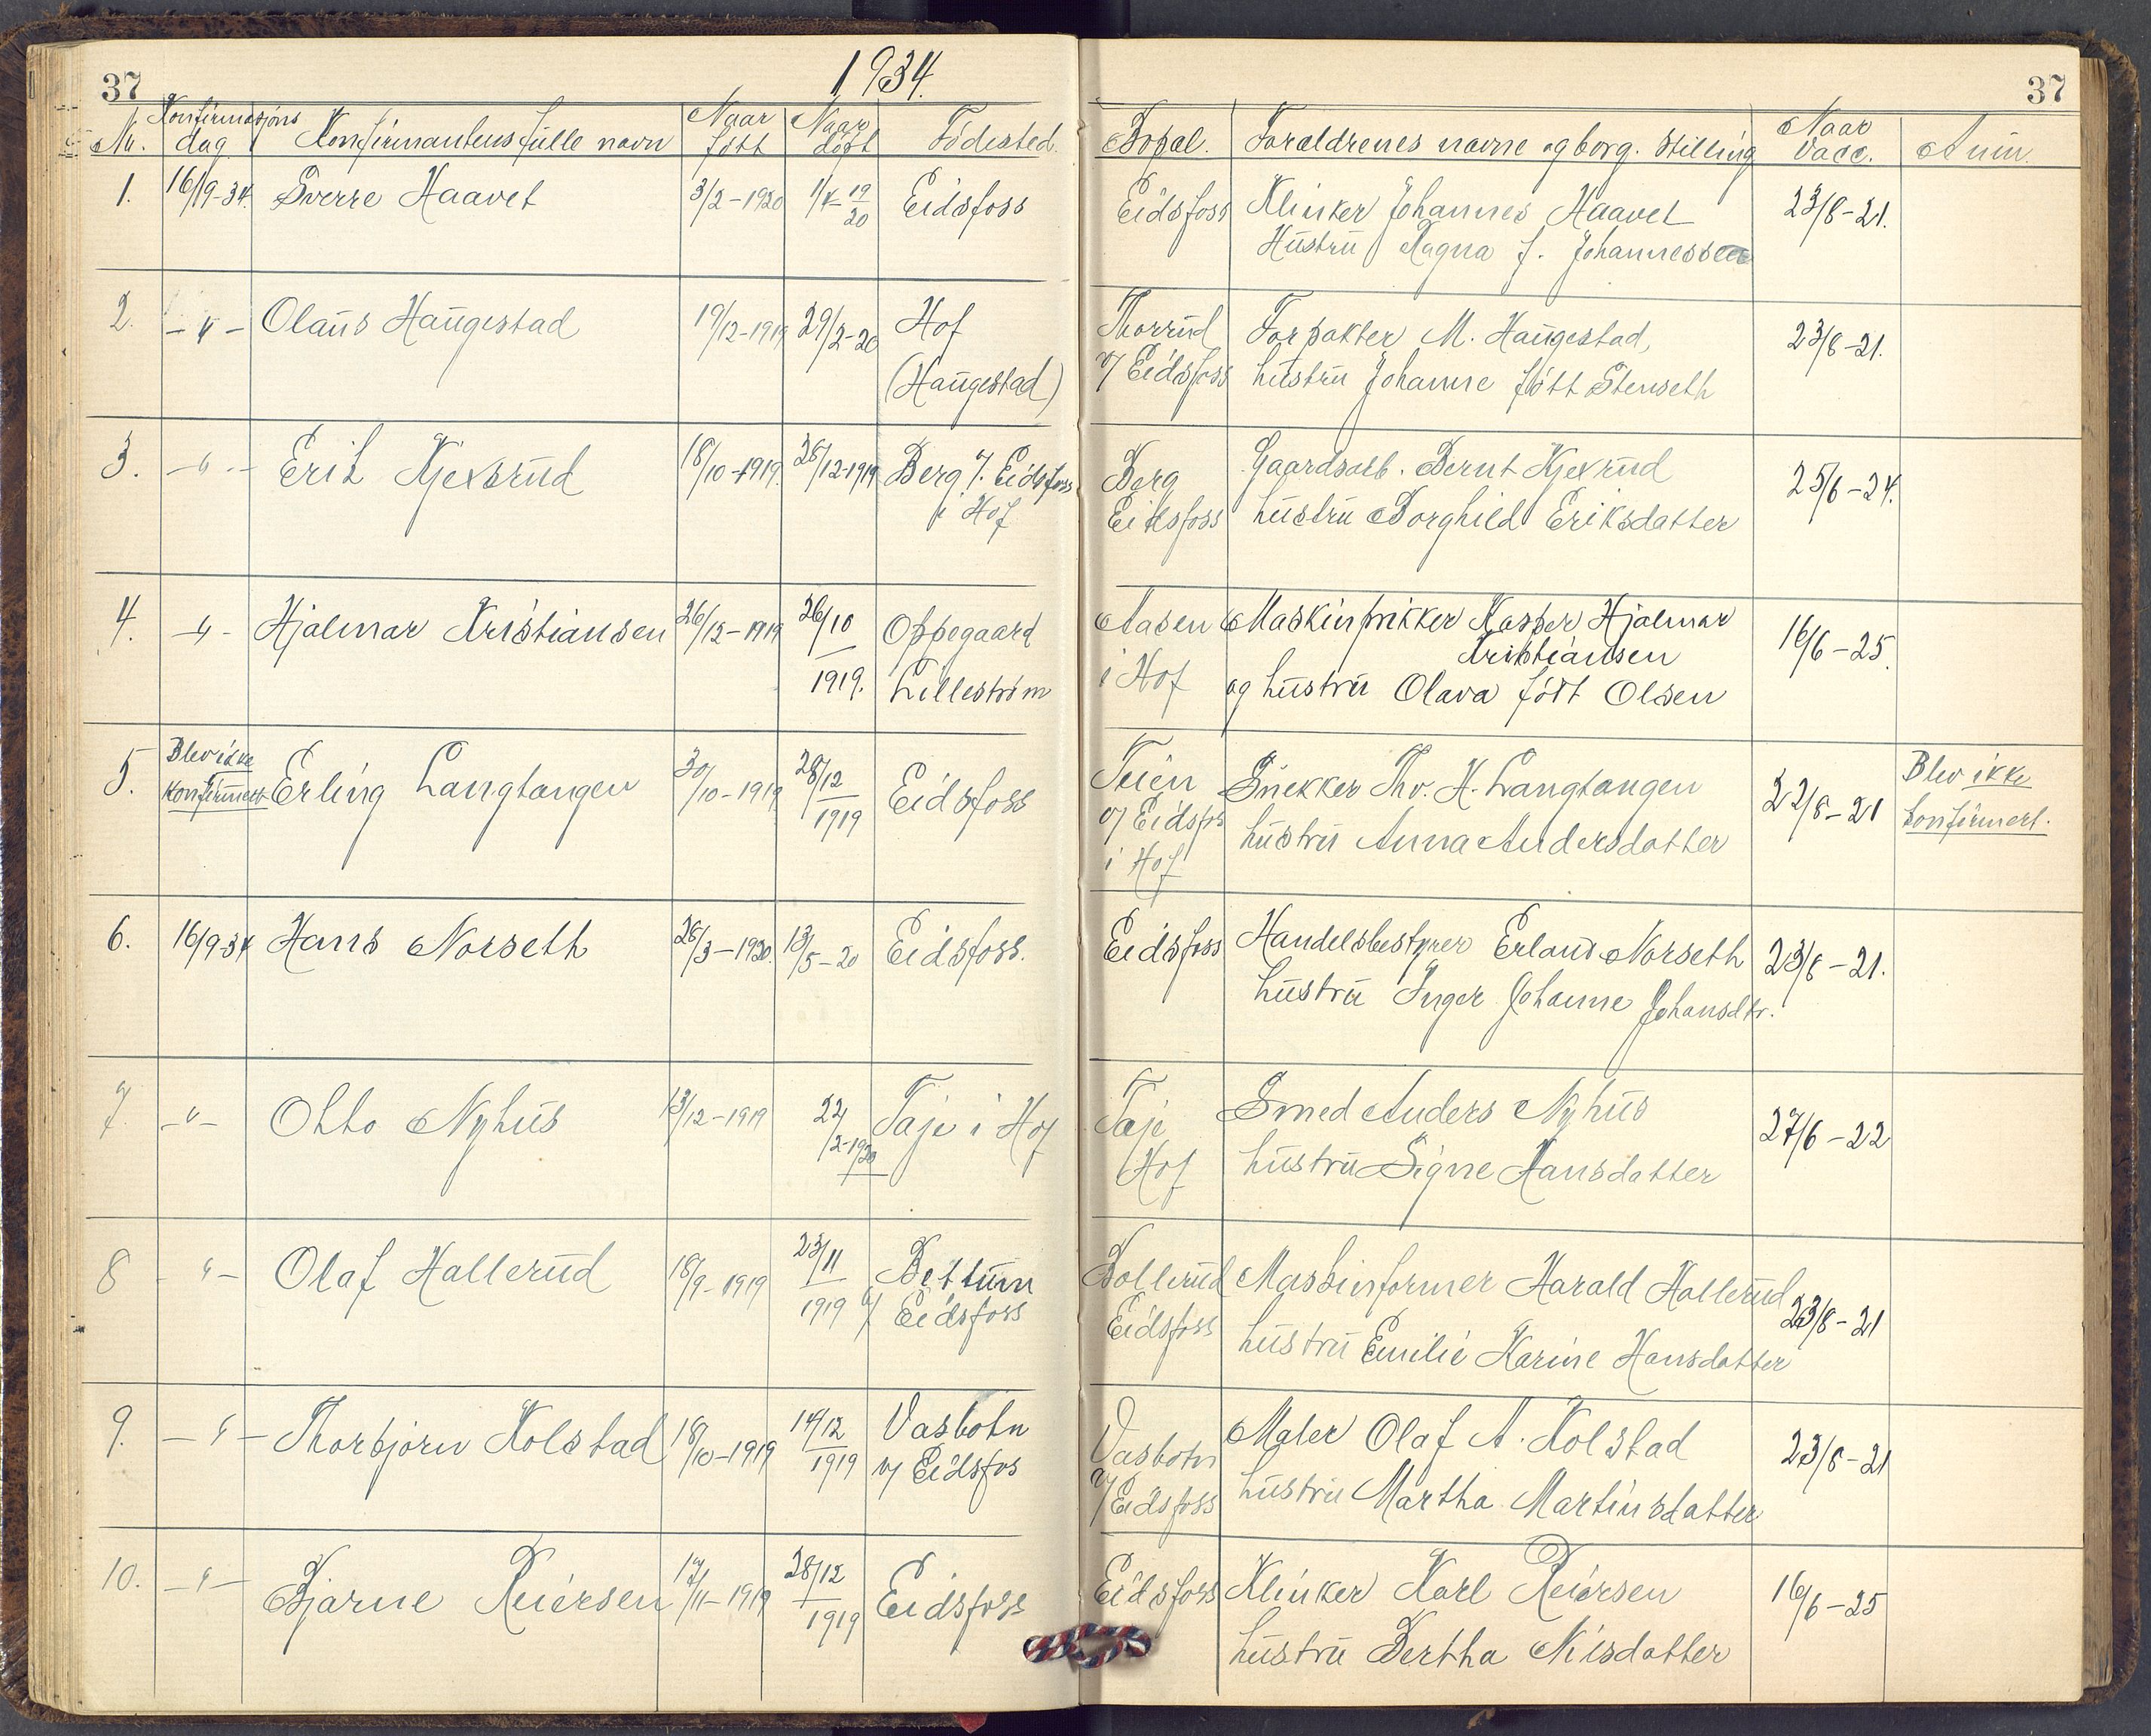 1934.
37
37
Nr. Konfirmasjons dag Konfirmantens fulle navn Naar født Naar døpt Födested. Bopæl. Foraldrenes navne og borg. stilling Naar Vacc. Anm.
1. 16/9-34. Sverre Haavet 3/2-1920 1/4-19/20 Eidsfoss Eidsfoss Klinker Johannes Haavet 23/8-21.
Hustru Ragna f. Johannessen
2. -"- Olaus Haugestad 19/12-1919 29/2-20 Hof Thorrud Forpakter M. Haugestad, 23/8-21.
(Haugestad) v/ Eidsfoss hustru Johanne født Stenseth
3. -"- Erik Kjexsrud 18/10-1919. 26/12-1919 Berg v/. Eidsfoss Berg Gaardsarb. Bernt Kjexrud 25/6-24.
i Hof Eidsfoss hustru Borghild Eriksdatter
4. -"- Hjalmar Kristiansen 26/12-1919 26/10 Oppegaard Aasen Maskinpikker Kasper Hjalmar 16/6-25.
Kristiansen
1919. Lillestrøm i Hof og hustru Olava født Olsen
5. Blev ikke Erling Langtangen 30/10-1919 28/12 Eidsfoss Teien Snekker Thv. H. Langtangen 22/8-21 Blev ikke
konfirmert 1919 v/ Eidsfos hustru Anna Andersdatter konfirmert.
i Hof
6. 16/9-34 Hans Norseth 26/3-1920. 13/5-20 Eidsfoss. Eidsfoss Handelsbestyrer Erland Norseth 23/8-21.
hustru Inger Johanne Johansdtr.
7. -"- Otto Nyhus 13/12-1919 22/2-1920 Taje i Hof Taje Smed Anders Nyhus 27/6-22
Hof hustru Signe Hansdatter
8 -"- Olaf Hallerud 18/9-1919 23/11 Bettum Bollerud Maskinformer Harald Hallerud 23/8-21
1919 v/ Eidsfoss Eidsfoss hustru Emilie Karine Hansdatter
9. -"- Thorbjørn Kolstad 18/10-1919 14/12 Vasbotn Vasbotn Maler Olaf A. Kolstad 23/8-21
1919 v/ Eidsfos v/ Eidsfoss hustru Martha Martinsdatter
10. -"- Bjarne Reiersen 17/11-1919 28/12 Eidsfoss Eidsfoss Klinker Karl Reiersen 16/6-25
1919 hustru Bertha Nisdatter